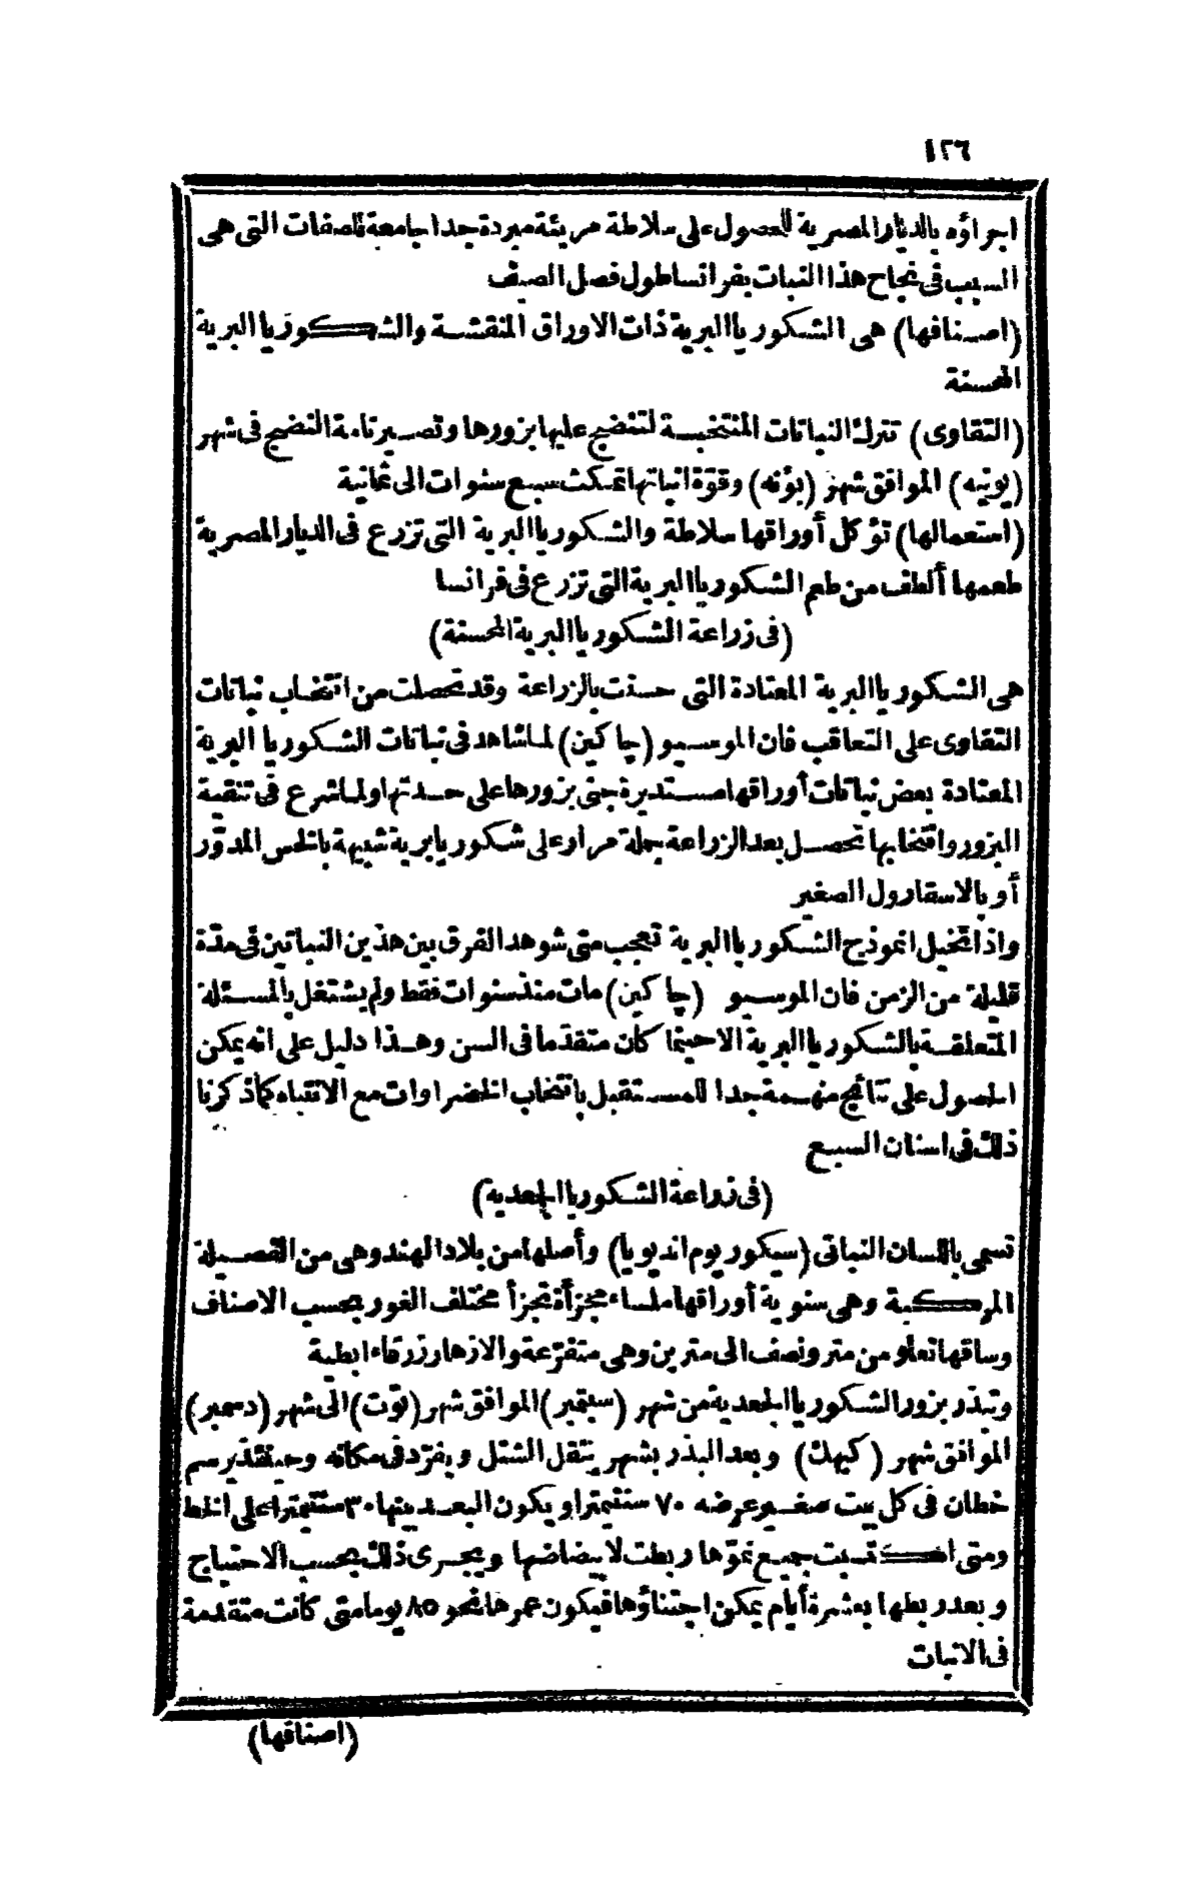 ١٢٦
اجراؤه بالديار المصرية للحصول على سلاطة مريئة مبردة جدا جامعة للصفات التى هى
السبب فى نجاح هذا النبات بفرانسا طول فصل الصيف
(اصنافها) هى الشكوريا البرية ذات الاوراق المنقشة والشكوريا البرية
المحسنة
(التقاوى) تترك النباتات المنتخبة لتنضج عليها بزورها وتصير تامة النضج فى شهر
(يونيه) الموافق شهر (بؤنه) وقوّة انباتها تمكث سبع سنوات الى ثمانية
(استعمالها) تؤكل أوراقها سلاطة والشكوريا البرية التى تزرع فى الديار المصرية
طعمها ألطف من طعم الشكوريا البرية التى تزرع فى فرانسا
(فى زراعة الشكوريا البرية المحسنة)
هى الشكوريا البرية المعتادة التى حسنت بالزراعة وقد تحصلت من انتخاب نباتات
التقاوى على التعاقب فان الموسيو (چاكين) لما شاهد فى نباتات الشكوريا البرية
المعتادة بعض نباتات أوراقها مستديرة جنى بزورها على حدتها ولما شرع فى تنقية
البزور وانتخابها تحصل بعد الزراعة جملة مرار على شكوريا برية شبيهة بالخس المدوّر
أو بالاسقارول الصغير
واذا تخيل انموذج الشكوريا البرية تعجب متى شوهد الفرق بين هذين النباتين فى مدّة
قليلة من الزمن فان الموسيو (چاكين) مات منذ سنوات فقط ولم يشتغل بالمسئلة
المتعلقة بالشكوريا البرية الا حينما كان متقدّما فى السن وهذا دليل على انه يمكن
الحصول على نتائج مهمة جدا للمستقبل بانتخاب الخضراوات مع الانتباه كما ذكرنا
ذلك فى اسنان السبع
(فى زراعة الشكوريا الجعدية)
تسمى باللسان النباتى (سيكوريوم انديويا) وأصلها من بلاد الهند وهى من الفصيلة
المركبة وهى سنوية أوراقها ملساء مجزأة تجزأ مختلف الغور بحسب الاصناف
وساقها تعلو من متر ونصف الى مترين وهى متفرّعة والازهار زرقاء ابطية
وتبذر بزور الشكوريا الجعدية من شهر (سبتمبر) الموافق شهر (توت) الى شهر (دسمبر)
الموافق شهر (كيهك) وبعد البذر بشهر ينقل الشتل ويفرّد فى مكانه وحينئذ يرسم
خطان فى كل بيت صغير عرضه ٧٠ سنتيمترا ويكون البعد بينها ٣٠ سنتيمترا على الخط
ومتى اكتسبت جميع نموّها ربطت لابيضاضها ويجرى ذلك بحسب الاحتياج
وبعد ربطها بعشرة أيام يمكن اجتناؤها فيكون عمرها نحو ٨٥ يوما متى كانت متقدمة
فى الانبات
(اصنافها)